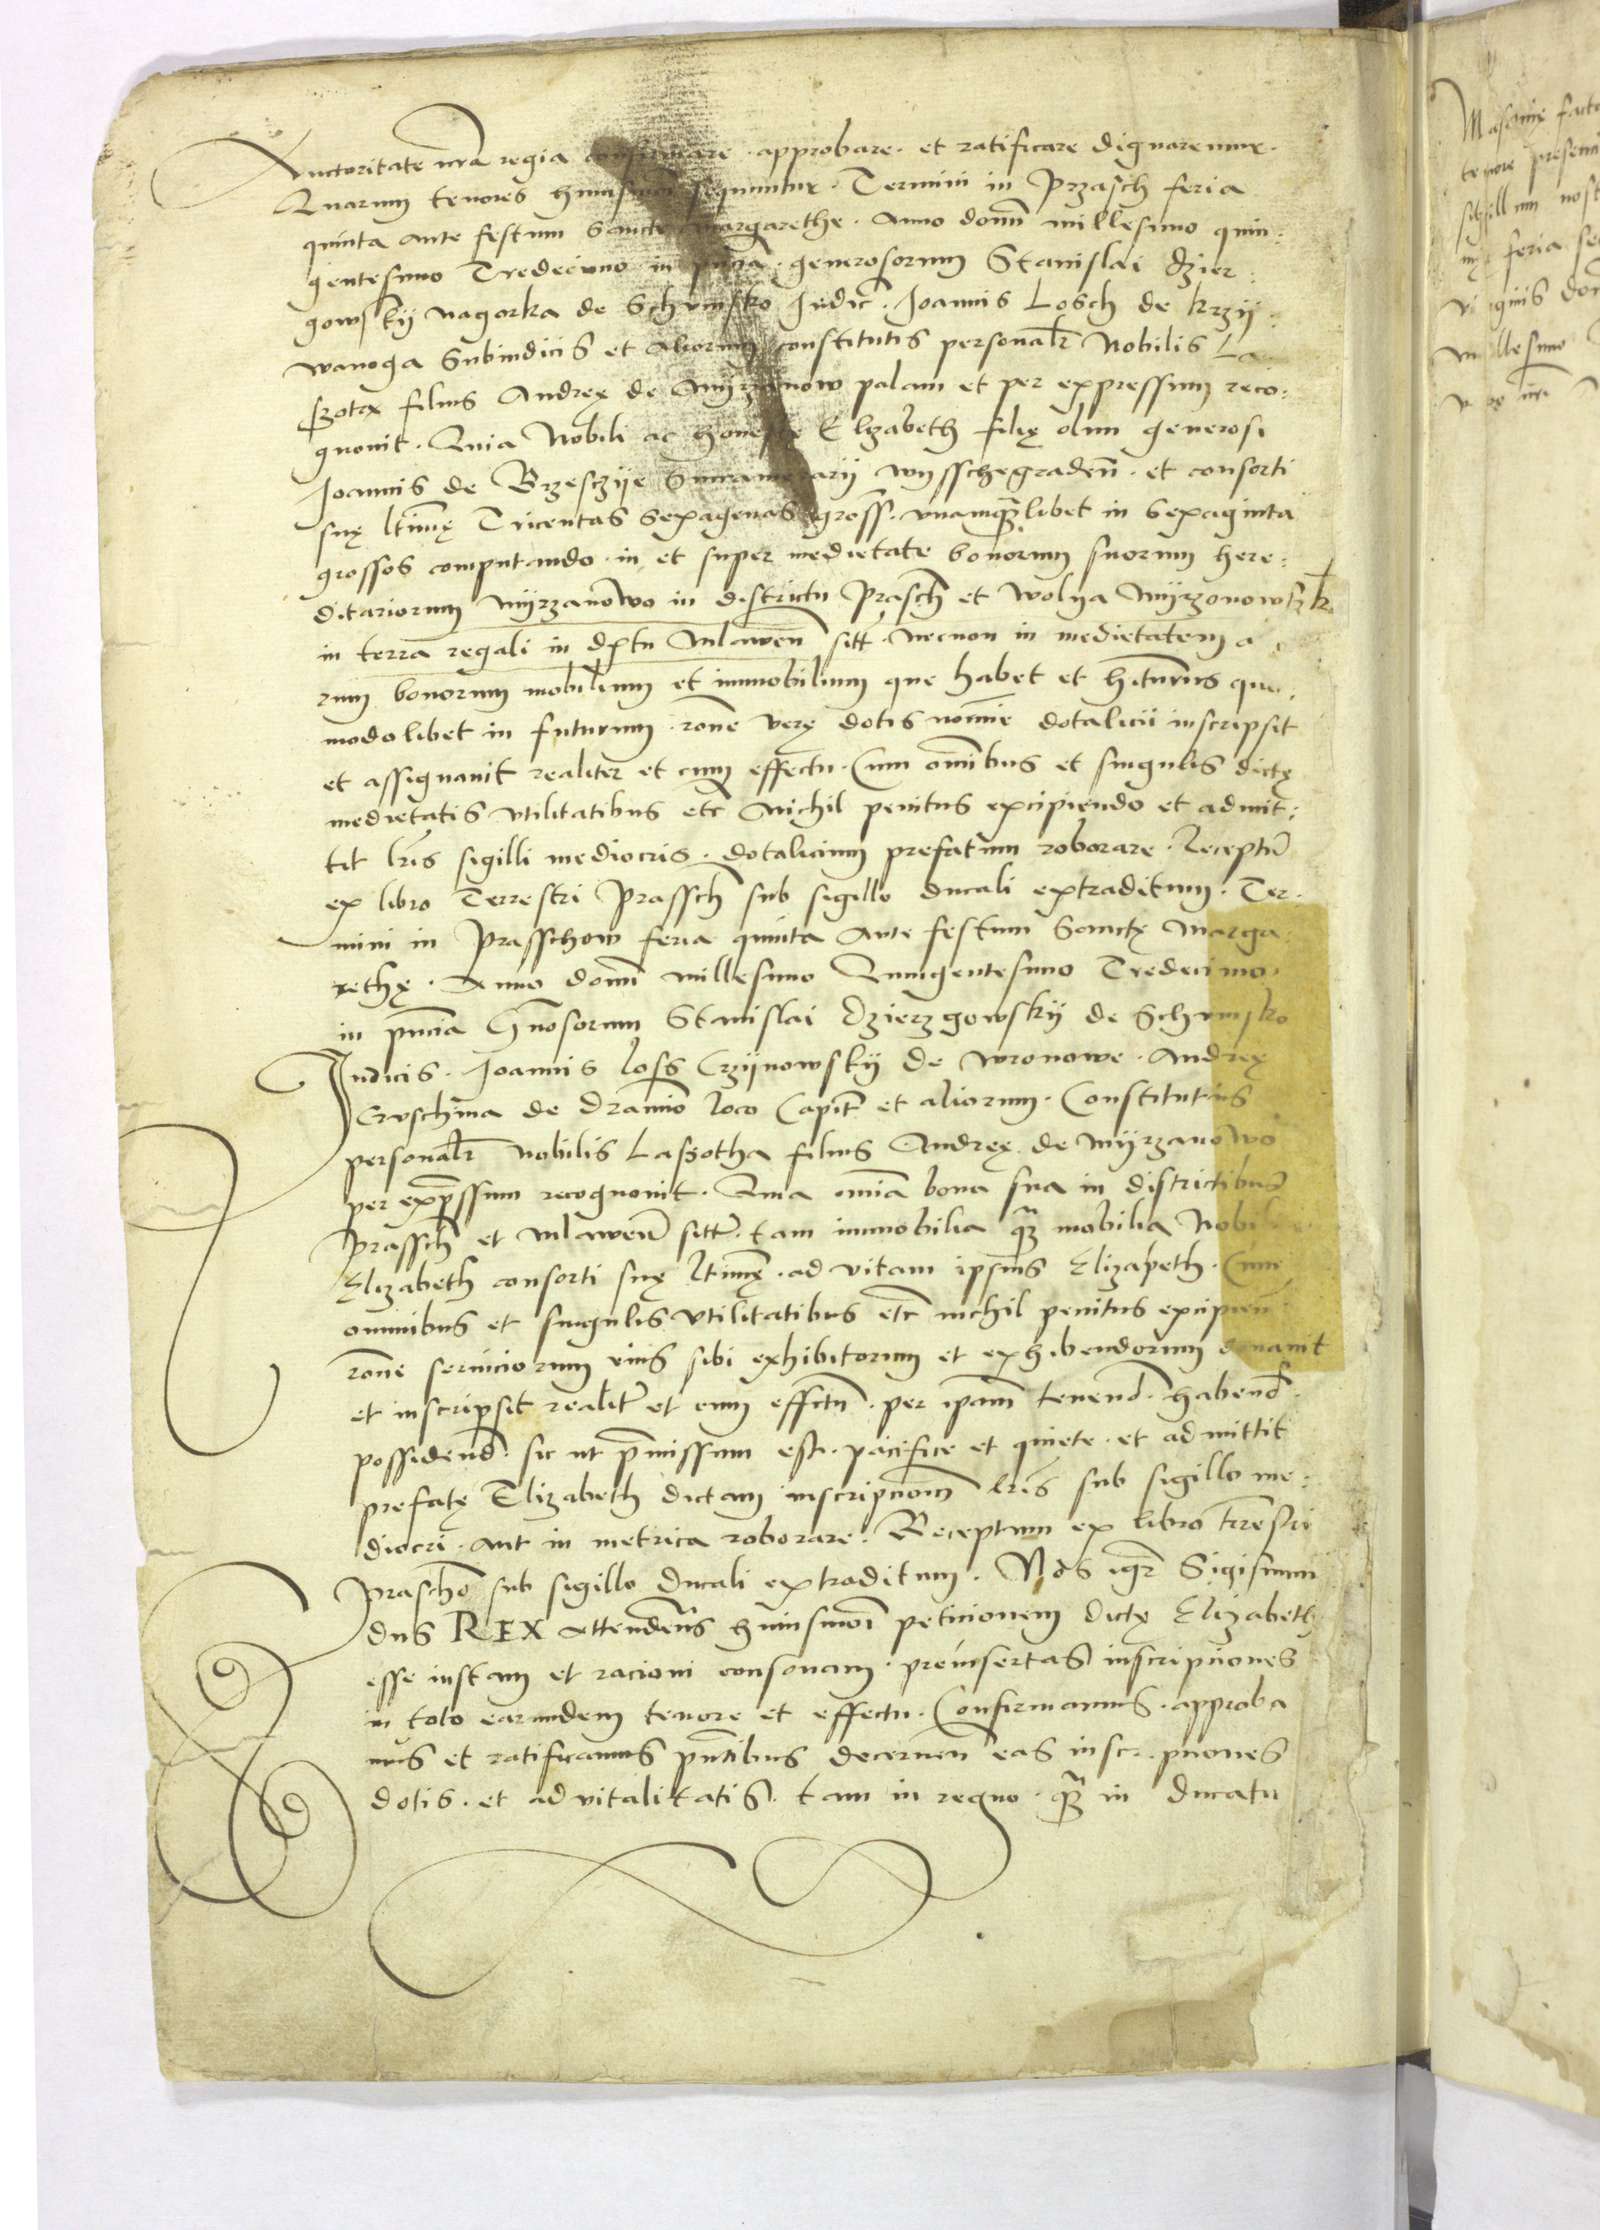 Auctoritate nrã regia confirmare . approbare . et ratificare dignaremur .
Quarum tenores huiusmõi sequuntur . Termini in Przasch feria
quinta ante festum Sancte Margarethe . Anno domĩ millesimo quin:
gentesimo Tredecimo in pñcia . generosorum Stanislai dzier:
gowskÿ nagorka de Schrinsko Iudic̃ . Ioannis Losch de krzÿ:
wanoga Subiudicis et aliorum constitutis personalr̃ Nobilis La
szotrx filius Andreę de mÿrzanow palam et per expressum reco:
gnouit . Quia Nobili ac honeste Elzabeth filię olim generosi
Ioannis de Brzesczÿe Succamerarÿ wysschegradeñ . et consorti
suę ltimę Tricentas Sexagenas gross . vnamquãlibet in Sexaginta
grossos computando . in et super medietate bonorum suorum here:
ditariorum mÿrzanowo in districtu Prasch̃ et wolya mÿrzonowszk
in terra regali in dp̃tu Mlaweñ sitt̃ . necnon in medietatem a
rum bonorum mobilium et immobilium que habet et hiturus quo
modolibet in futurum . rõne verę dotis nomĩe dotalicii inscripsit
et assignauit realiter et cum effectu . Cum om̃ibus et singulis dictę
medietatis vtilitatibus etc̃ Nichil penitus excipiendo et admit:
tit lr̃is sigilli mediocris . dotalicium prefatum roborare . Receptũ
ex libro Terrestri Prassch̃ sub sigillo ducali extraditum . Ter.
mini in Prasschow feria quinta Ante festum Sanctę Marga:
rethę . Anno domĩ millesimo Quingentesimo Tredecimo .
in pñcia Gñosorum Stanislai dzierzgowskÿ de Schrinsko
Iudicis . Ioannis loss Crzÿnowskÿ de wronowe . Andreę
Cruschina de dramĩo loco Capit̃ et aliorum . Constitutus
personalr̃ nobilis Laszotha filius Andreę de mÿrzanowo
per exp̃ssum recognouit . Quia om̃ia bona sua in districtibus
Prassch̃ et mlaweñ sitt̃ . tam immobilia quã mobilia Nobili
Elizabeth consorti suę ltimę . ad vitam ipsius Elizabeth . Cum
omnibus et singulis vtilitatibus etc̃ nichil penitus excipieñ
rõne seruiciorum eius sibi exhibitorum et exhibendorum donauit
et inscripsit realitr̃ et cum effctũ . per ipam̃ tenend̃ . habend̃ .
possidend̃ . sic ut p̃missum est . pacifice et quiete . et admittit
prefatę Elizabeth dictam inscripcion̄em lr̃is sub sigillo me:
diocri . aut in metrica roborare . Receptum ex libro tr̃restri
Prasch̃o sub sigillo Ducali extraditum . Nos igr̃ Sigismun
dus REX attendentes huiusmõi peticionem dictę Elizabeth
esse iustam et racioni consonam . preinsertas inscripciones
in toto earundem tenore et effectu . Confirmamus . approba
mus et ratificamus pñtibus decerneñ eas inscripciones
dotis . et aduitalitatis . tam in regno . quã in ducatu